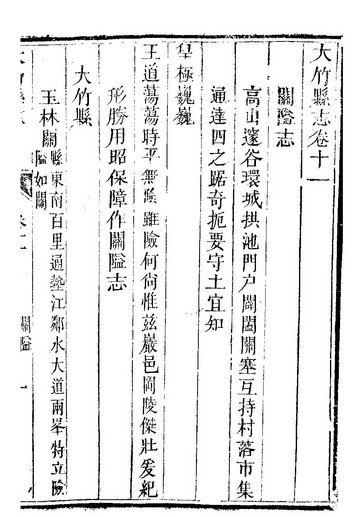 大竹縣志卷十一
關隘志
高山邃谷環城拱池門户闤闠關塞互持村落市集
通達四之踞奇扼要守土宜知
皇極巍巍
王道蕩蕩時平無隂雖險何尚惟兹巖邑岡陵傑壯爰紀
形勝用昭保障作關隘志
大竹縣
玉林關縣東南百里通墊江鄰水大道兩峯特立險
隘如關
關隘
一